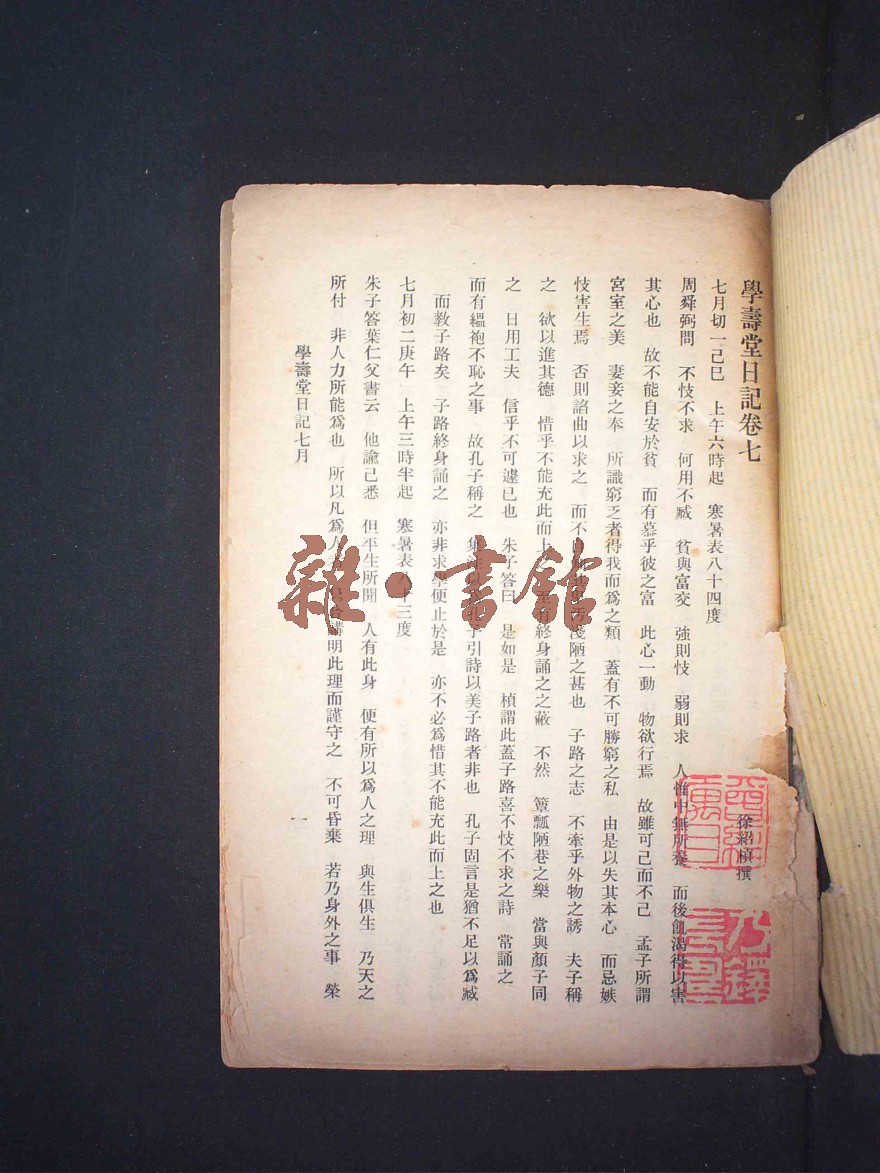 學壽堂日記卷七
徐紹楨撰
七月切一己巳 上午六時起 寒暑表八十四度
周舜弼問 不忮不求 何用不臧 貧與富交 強則忮 弱則求 人惟中無所養 而後飢渴得以害
其心也 故不能自安於貧 而有慕乎彼之富 此心一動 物欲行焉 故雖可已而不已 孟子所謂
宮室之美 妻妾之奉 所識窮乏者得我而爲之類 蓋有不可勝窮之私 由是以失其本心 而忌嫉
忮害生焉 否則諂曲以求之 而不 汚淺陋之甚也 子路之志 不牽乎外物之誘 夫子稱
之 欲以進其德 惜乎不能充此而上之 至有終身誦之之蔽 不然 簞瓢陋巷之樂 當與顏子同
之 日用工夫 信乎不可遽已也 朱子答曰 是如是 楨謂此蓋子路喜不忮不求之詩 常誦之
而有縕袍不恥之事 故孔子稱之 集 以 孔子引詩以美子路者非也 孔子固言是猶不足以爲臧
而敎子路矣 子路終身誦之 亦非求學便止於是 亦不必爲惜其不能充此而上之也
七月初二庚午 上午三時半起 寒暑表八十三度
朱子答葉仁父書云 他諭已悉 但平生所聞 人有此身 便有所以爲人之理 與生俱生 乃天之
所付 非人力所能爲也 所以凡爲人 講明此理而謹守之 不可昏棄 若乃身外之事 榮
學壽堂日記七月
一
雜·書館